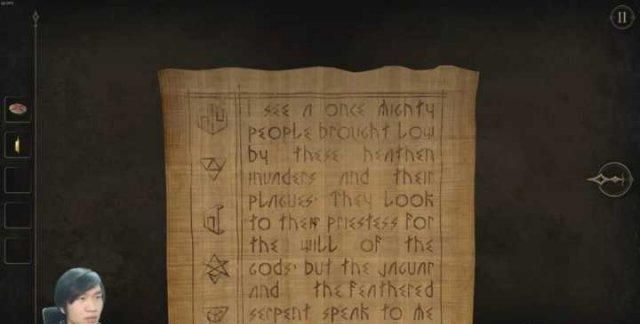 I see a once mighty
people brought low
by these heathen
invaders and their
plagues. They look
to their priestess for
the will of the
gods. but the jaguar
and the feathered
serpent speak to me